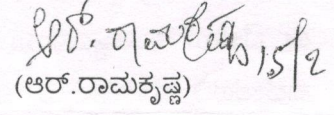 ಆರ್. ರಾಮಕೃಷ್ಣ 15/2
(ಆರ್.ರಾಮಕೃಷ್ಣ)